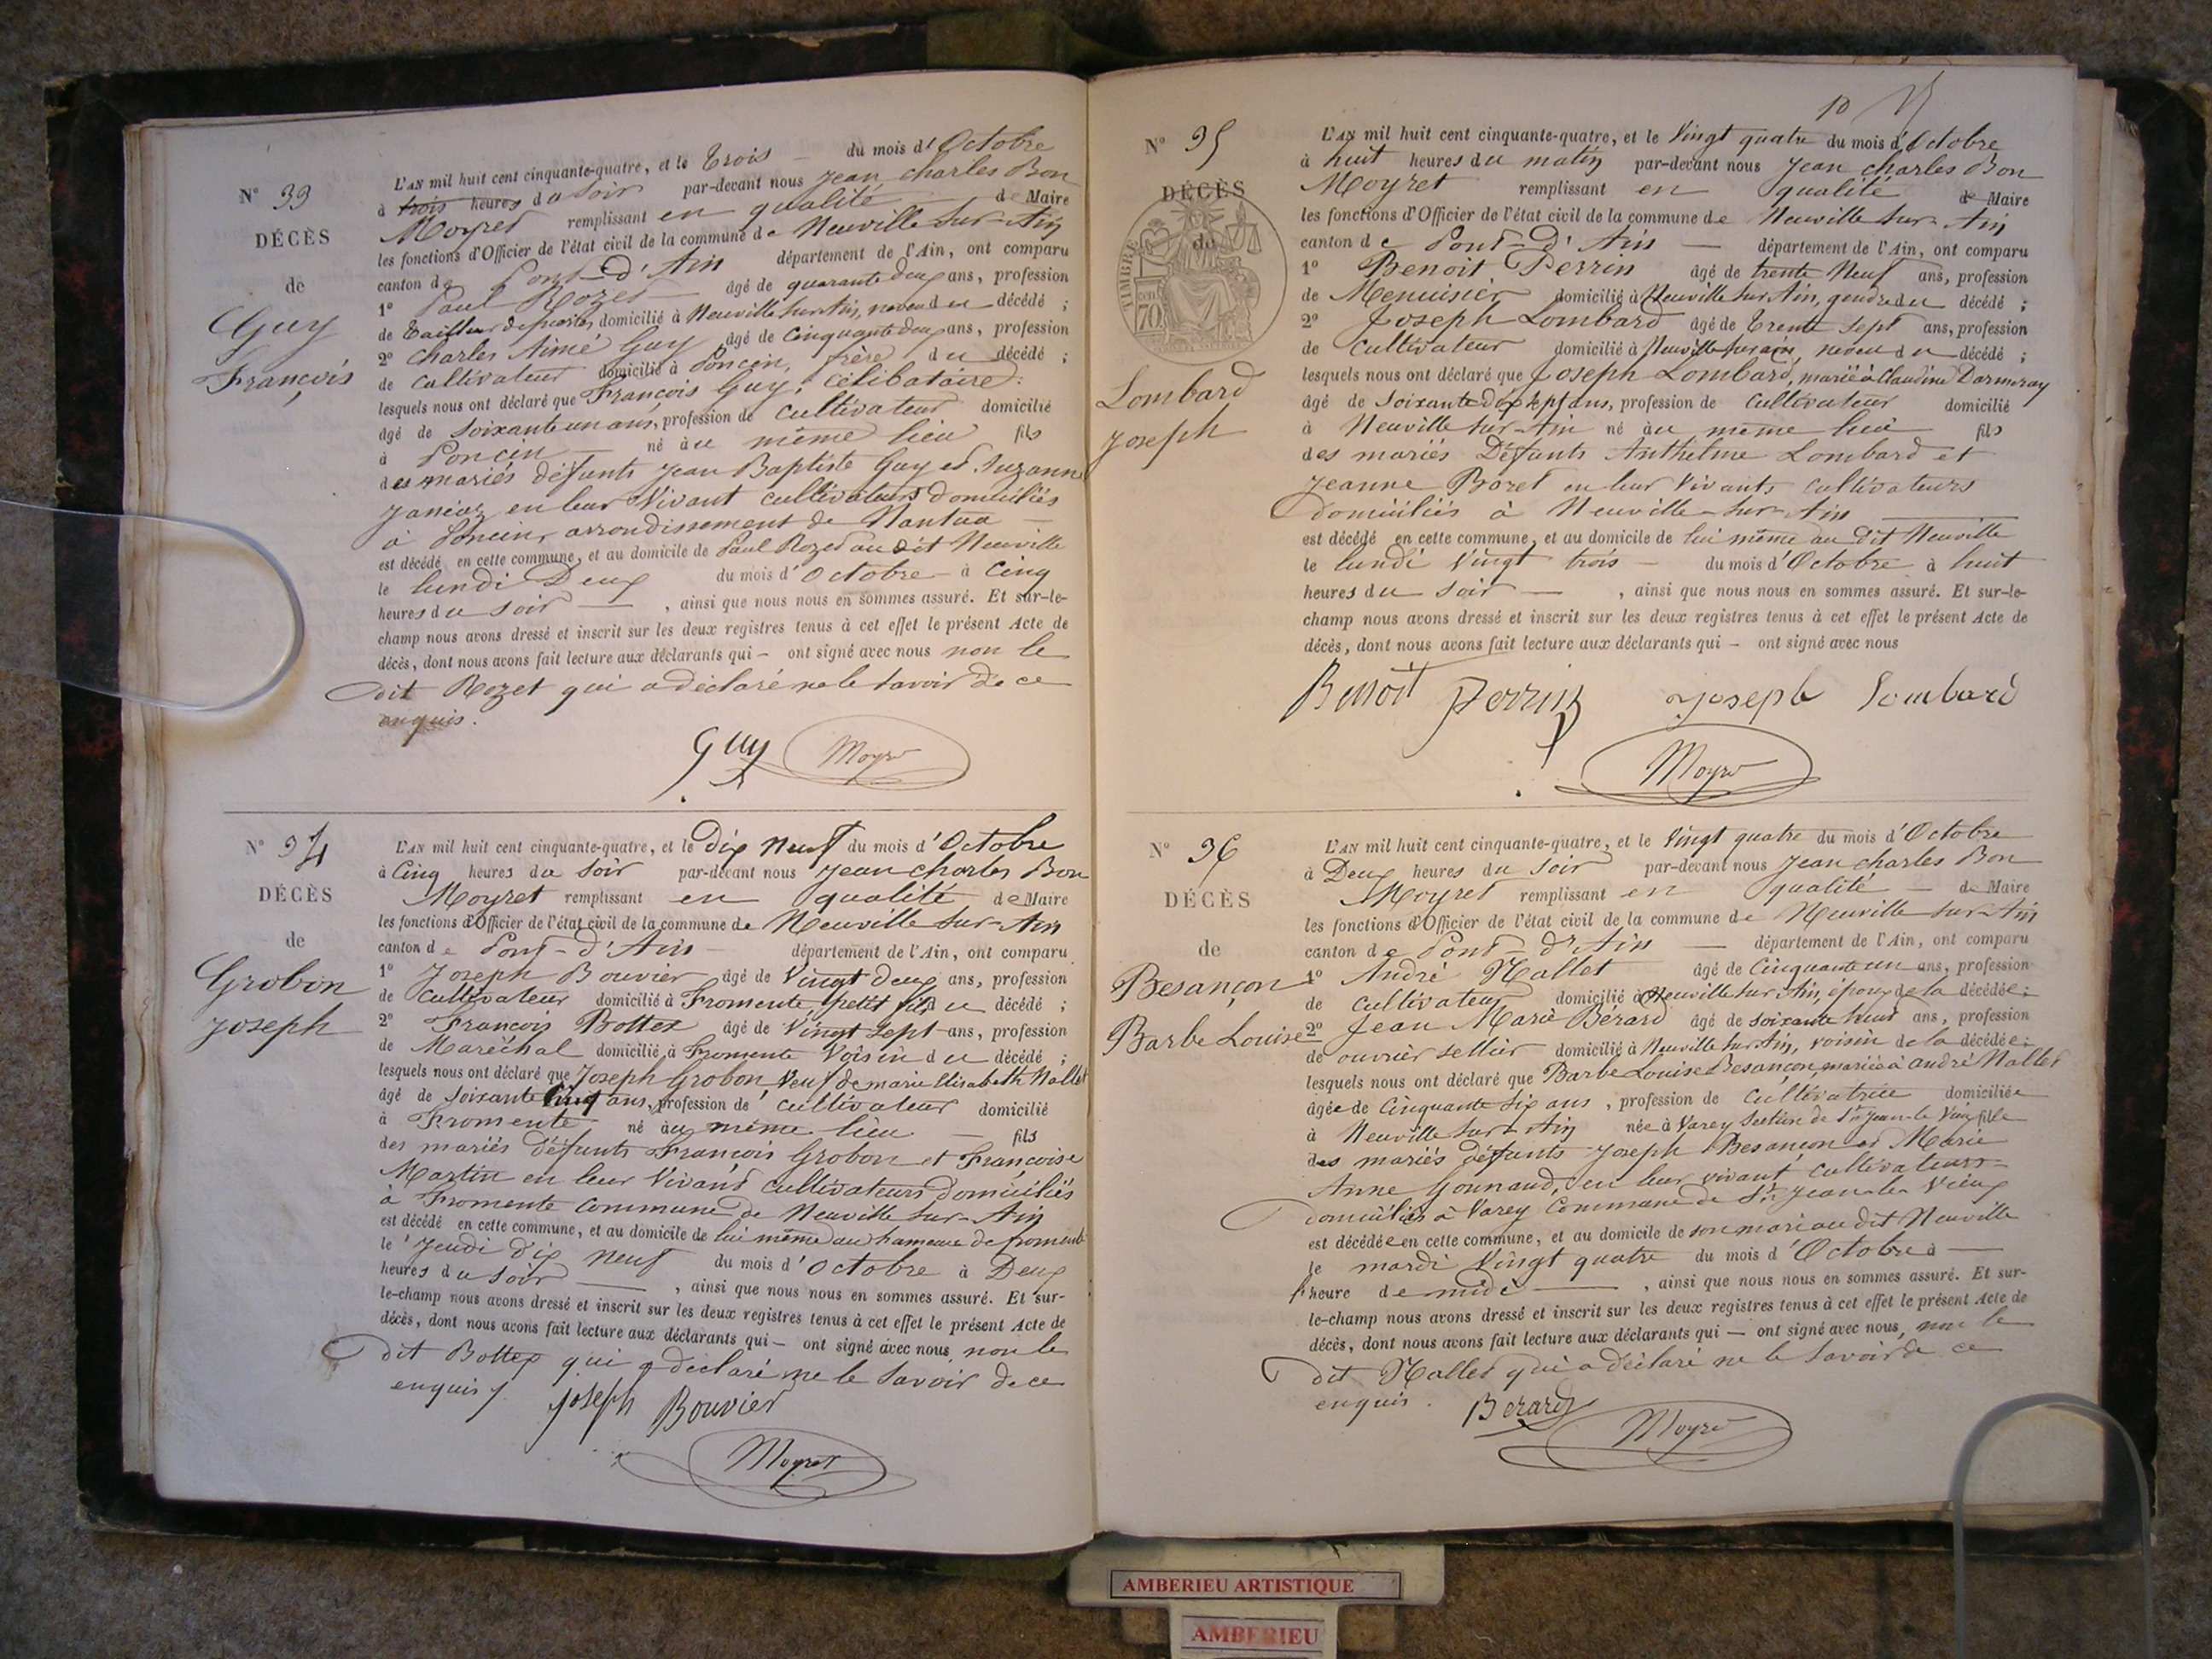 N° 33
DÉCÈS
de
Guy
François
L'AN mil huit cent cinquante-quatre, et le Trois du mois d'Octobre
à trois heures du soir par-devant nous Jean charles Bon
Moyret remplissant en qualité de Maire
les fonctions d'Officier de l'état civil de la commune de Neuville sur-Ain
canton de Pont-d'Ain département de l'Ain, ont comparu
1° Paul Rozet âgé de quarante deux ans, profession
de Tailleur de pierres, domicilié à Neuville sur Ain, neveu du décédé ;
2° Charles Aimé Guy âgé de Cinquante deux ans, profession
de Cultivateur domicilié à Poncin, frère du décédé ;
lesquels nous ont déclaré que François Guy, célibataire,
âgé de soixante un ans, profession de Cultivateur domicilié
à Poncin né au même lieu fils
des mariés défunts Jean Baptiste Guy et Suzanne
Janéaz en leur Vivant cultivateurs domiciliés
à Poncin, arrondissement de Nantua
est décédé en cette commune, et au domicile de Paul Rozet au dit Neuville
le lundi Deux du mois d'Octobre à Cinq
heures du soir , ainsi que nous nous en sommes assuré. Et sur-le-
champ nous avons dressé et inscrit sur les deux registres tenus à cet effet le présent Acte de
décès, dont nous avons fait lecture aux déclarants qui – ont signé avec nous non le
dit Rozet qui a déclaré ne le savoir de ce
enquis.
Guy Moyret
N° 34
DÉCÈS
de
Grobon
Joseph
L'AN mil huit cent cinquante-quatre, et le Dix Neuf du mois d'Octobre
à Cinq heures du soir par-devant nous Jean charles Bon
Moyret remplissant en qualité de Maire
les fonctions d'Officier de l'état civil de la commune de Neuville sur-Ain
canton de Pont-d'Ain département de l'Ain, ont comparu
1° Joseph Bouvier âgé de Vingt deux ans, profession
de Cultivateur domicilié à Fromente, petit fils du décédé ;
2° François Bottex âgé de Vingt sept ans, profession
de Maréchal domicilié à Fromente Voisin du décédé ;
lesquels nous ont déclaré que Joseph Grobon, Veuf de marie Elisabeth Nallet
âgé de soixante Cinq ans, profession de cultivateur domicilié
à Fromente né au même lieu fils
des mariés défunts François Grobon et Françoise
Martin en leur Vivant cultivateurs domiciliés
à Fromente commune de Neuville sur-Ain
est décédé en cette commune, et au domicile de lui même au hameau de froment
le Jeudi dix neuf du mois d'Octobre à Deux
heures du soir , ainsi que nous nous en sommes assuré. Et sur-
le-champ nous avons dressé et inscrit sur les deux registres tenus à cet effet le présent Acte de
décès, dont nous avons fait lecture aux déclarants qui – ont signé avec nous, non le
dit Bottex qui a déclaré ne le savoir de ce
enquis.
Joseph Bouvier
Moyret
10
N° 35
DÉCÈS
de
TIMBRE
70
Lombard
Joseph
L'AN mil huit cent cinquante-quatre, et le Vingt quatre du mois d'Octobre
à huit heures du matin par-devant nous Jean charles Bon
Moyret remplissant en qualité de Maire
les fonctions d'Officier de l'état civil de la commune de Neuville sur-Ain
canton de Pont-D'Ain département de l'Ain, ont comparu
1° Benoit Perrin âgé de trente Neuf ans, profession
de Menuisier domicilié à Neuville sur Ain, gendre du décédé ;
2° Joseph Lombard âgé de Trente sept ans, profession
de Cultivateur domicilié à Neuville sur ain, neveu du décédé ;
lesquels nous ont déclaré que Joseph Lombard, marié à Claudine Darmeray
âgé de soixante dix sept ans, profession de Cultivateur domicilié
à Neuville sur-Ain né au même lieu fils
des mariés Défunts Anthelme Lombard et
Jeanne Bozet en leur Vivants cultivateurs
Domiciliés à Neuville-sur-Ain
est décédé en cette commune, et au domicile de lui même au dit Neuville
le lundi Vingt trois du mois d'Octobre à huit
heures du soir , ainsi que nous nous en sommes assuré. Et sur-le-
champ nous avons dressé et inscrit sur les deux registres tenus à cet effet le présent Acte de
décès, dont nous avons fait lecture aux déclarants qui – ont signé avec nous
Benoit Perrin Joseph Lombard
Moyret
N° 36
DÉCÈS
de
Besançon
Barbe Louise
L'AN mil huit cent cinquante-quatre, et le Vingt quatre du mois d'Octobre
à Deux heures du soir par-devant nous Jean charles Bon
Moyret remplissant en qualité de Maire
les fonctions d'Officier de l'état civil de la commune de Neuville sur Ain
canton de Pont d'Ain département de l'Ain, ont comparu
1° André Nallet âgé de Cinquante un ans, profession
de cultivateur domicilié à Neuville sur Ain, époux de la décédée ;
2° Jean Marie Bérard âgé de soixante Neuf ans, profession
de ouvrier sellier domicilié à Neuville sur Ain, voisin de la décédée ;
lesquels nous ont déclaré que Barbe Louise Besançon, mariée à André Nallet
âgée de Cinquante Six ans, profession de Cultivatrice domiciliée
à Neuville sur-Ain née à Varey Section de St Jean-le Vieux fille
des mariés défunts Joseph Besançon et Marie
Anne Gonnand, en leur vivant cultivateurs
domiciliés à Varey Commune de St Jean-le Vieux
est décédée en cette commune, et au domicile de son mari au dit Neuville
le mardi Vingt quatre du mois d'Octobre à
l'heure de midi , ainsi que nous nous en sommes assuré. Et sur-
le-champ nous avons dressé et inscrit sur les deux registres tenus à cet effet le présent Acte de
décès, dont nous avons fait lecture aux déclarants qui – ont signé avec nous, non le
dit Nallet qui a déclaré ne le savoir de ce
enquis.
Berard Moyret
AMBERIEU ARTISTIQUE
AMBERIEU